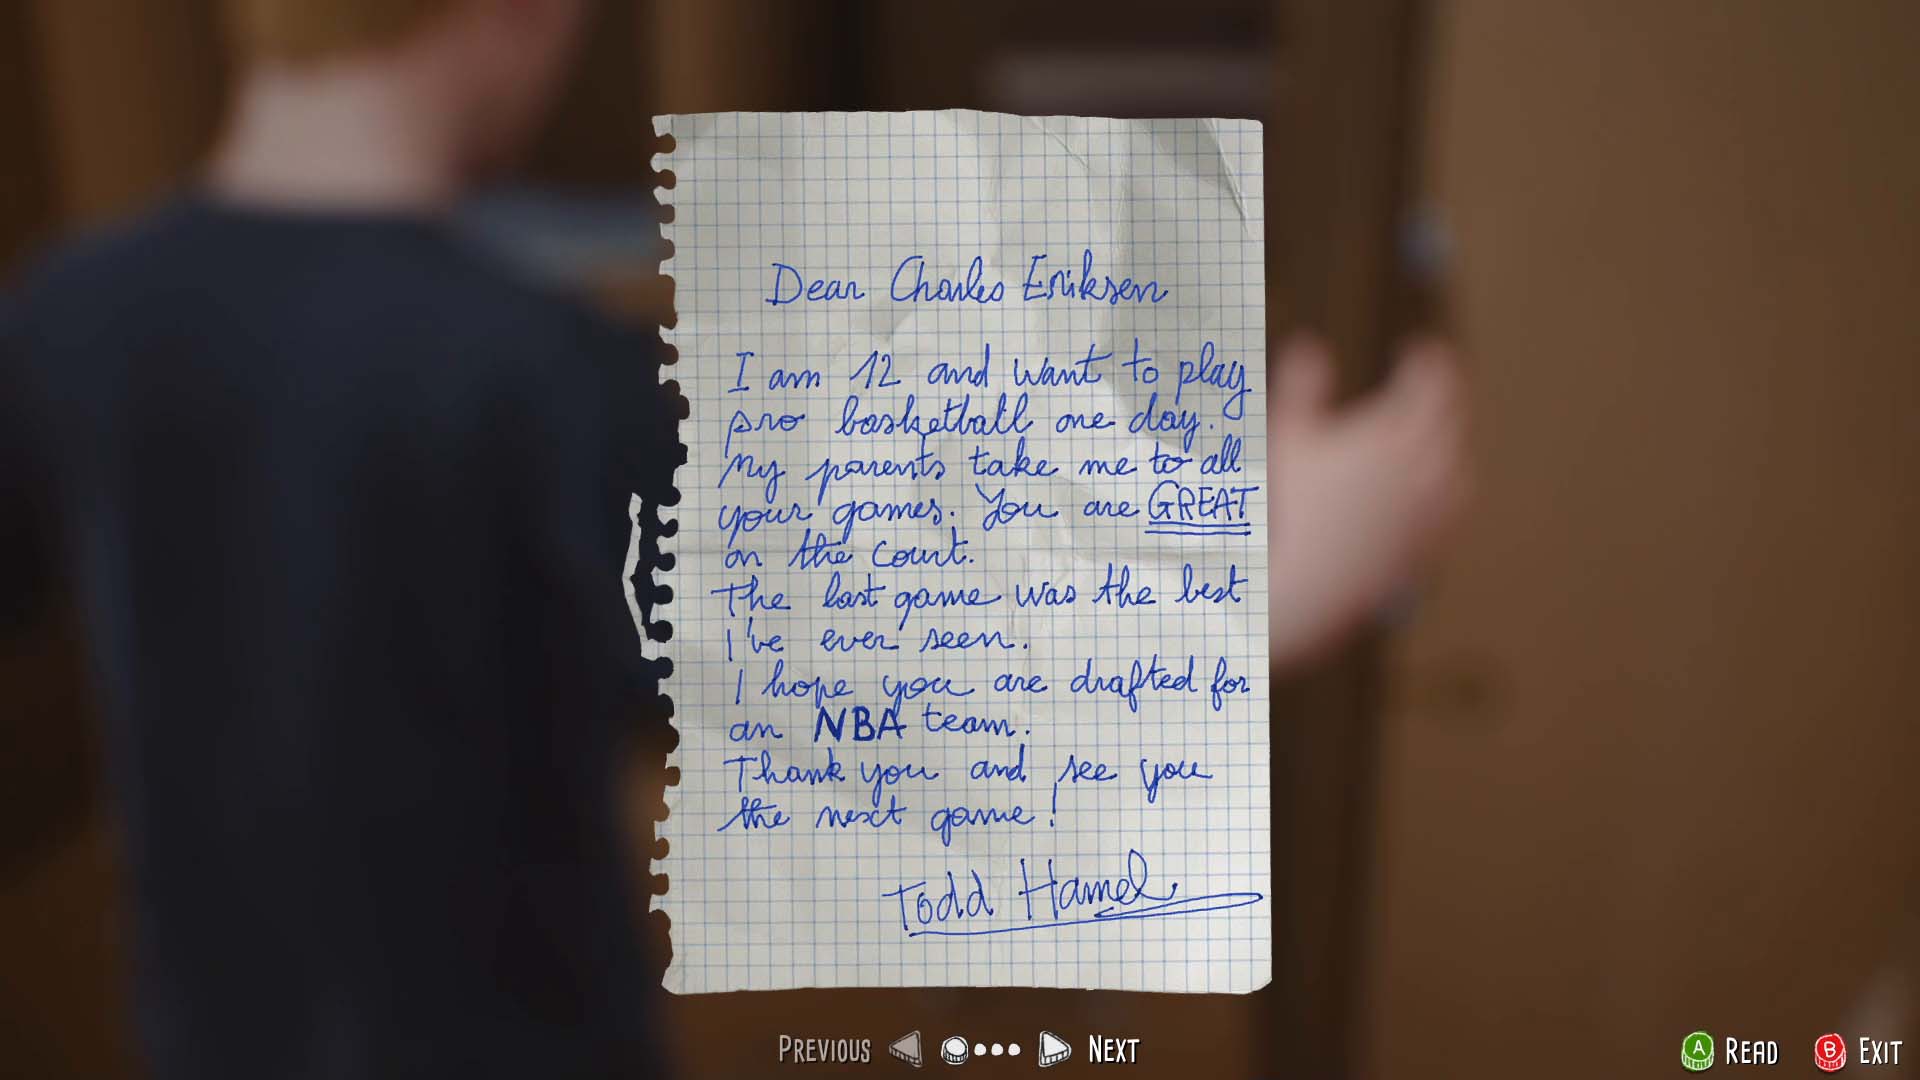 Dear Charles Eriksen
I am 12 and want to play
pro basketball one day.
My parents take me to all
your games. You are GREAT
on the court.
The last game was the best
I've ever seen.
I hope you are drafted for
an NBA team.
Thank you and see you
the next game!
Todd Hamel
PREVIOUS NEXT
A READ B EXIT